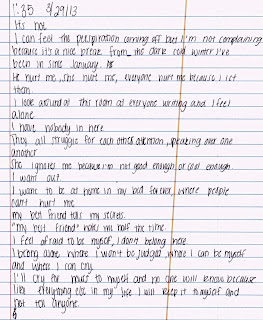 1:35 3/29/13
It's hot
I can feel the perspiration coming off but I'm not complaining
because it's a nice break from the dark cold winter I've
been in since January.
He hurt me, she hurt me, everyone hurt me because I let
them.
I look around this room at everyone writing and I feel
alone
I have nobody in here
They all struggle for each others attention, speaking over one
another
She ignores me because I'm not good enough or cool enough.
I want out.
I want to be at home in my bed forever, where people
can't hurt me
my best friend tells my secrets.
"my best friend" hates me half the time.
I feel afraid to be myself, I don't belong here
I belong alone where I won't be judged, where I can be myself
and where I can cry
I'll cry for hours to myself and no one will know because
like everything else in my life I will keep it to myself and
not tell anyone.